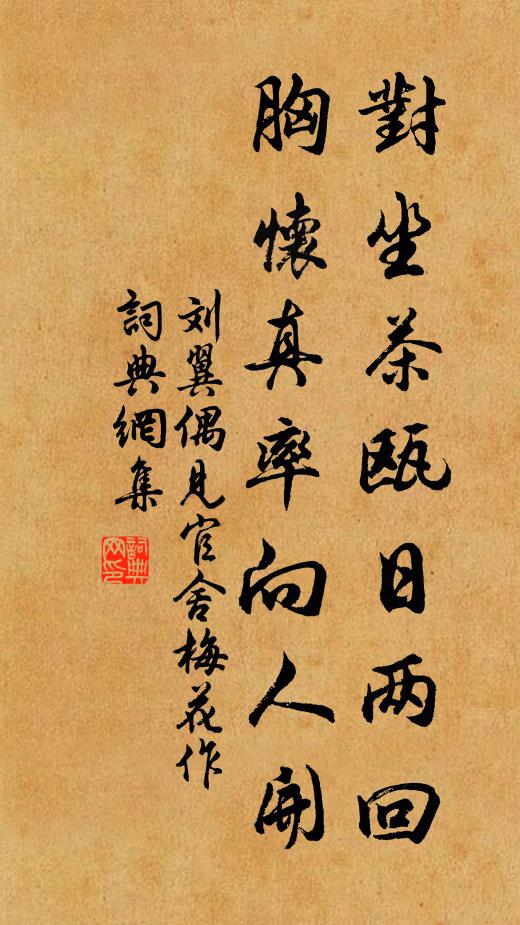 對坐茶甌日两回
胸懷真率向人開
刘翼偶見官舍梅花作
詞典網集
詞典网印